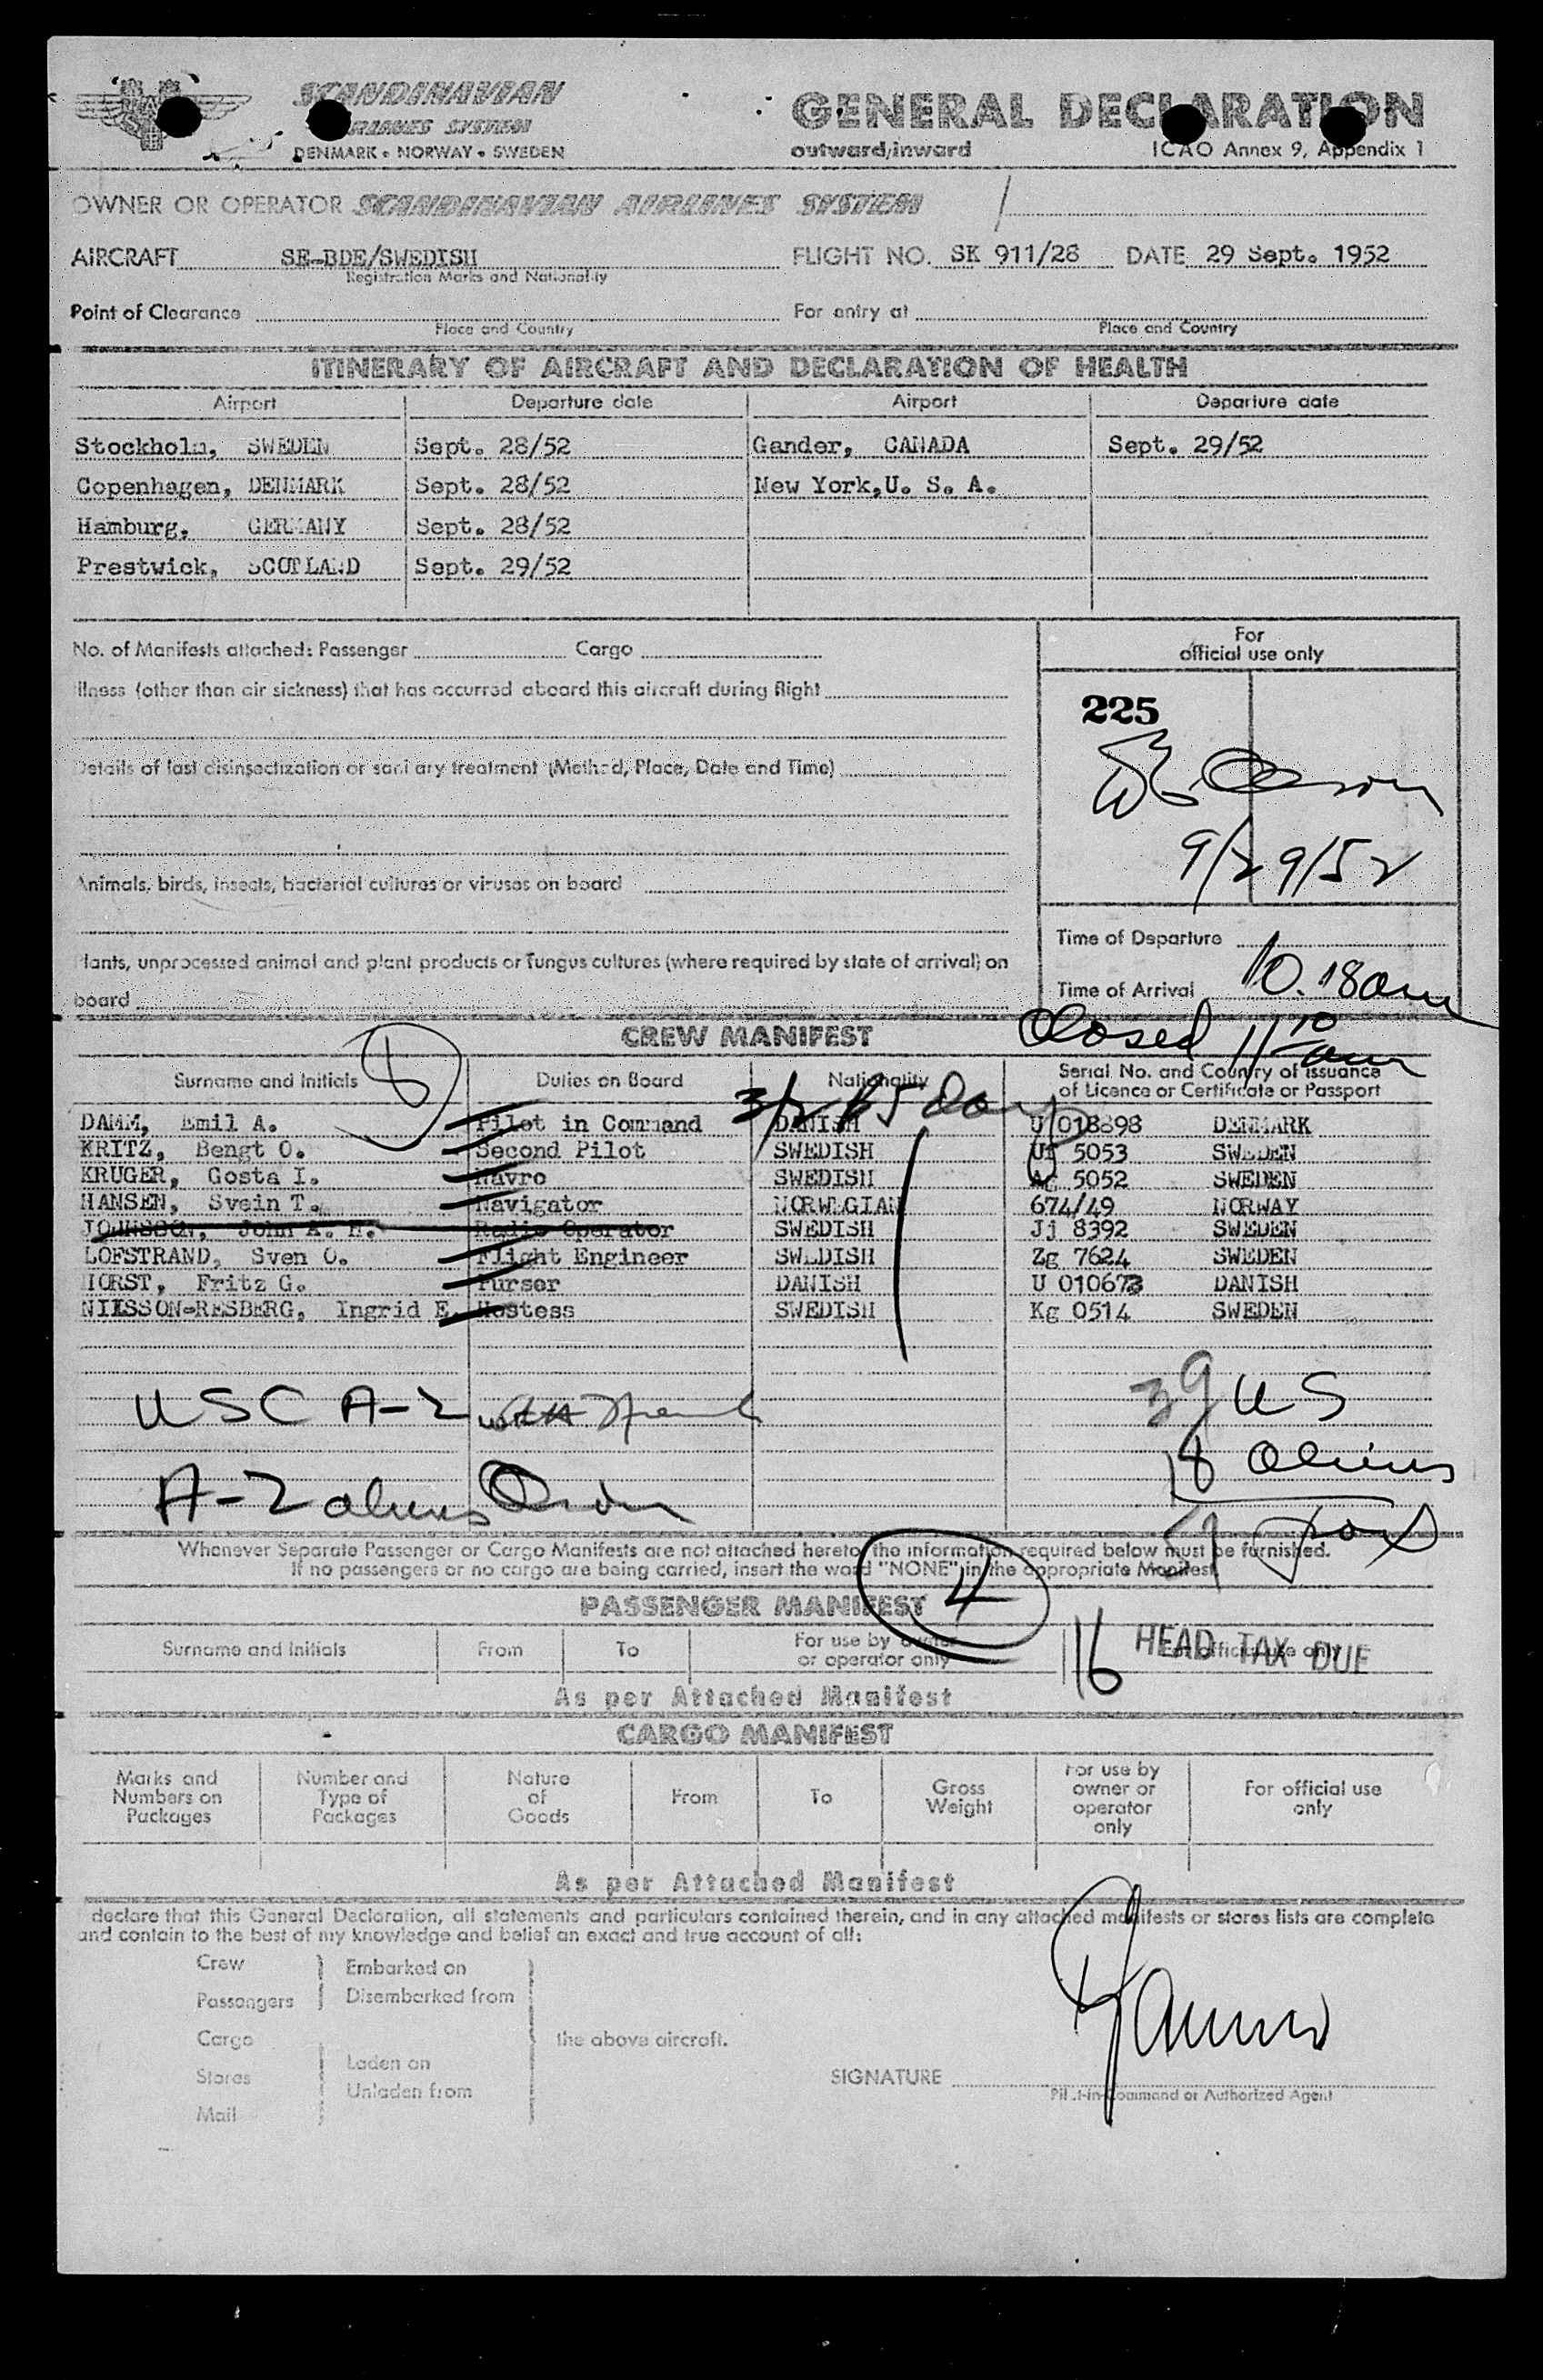 SCANDINAVIAN
AIRLINES SYSTEM
DENMARK • NORWAY • SWEDEN
GENERAL DECLARATION
outward/inward ICAO Annex 9, Appendix 1
OWNER OR OPERATOR SCANDINAVIAN AIRLINES SYSTEM
AIRCRAFT SE-BDE/SWEDISH FLIGHT NO. SK 911/28 DATE 29 Sept. 1952
Registration Marks and Nationality
Point of Clearance For entry at
Place and Country Place and Country
ITINERARY OF AIRCRAFT AND DECLARATION OF HEALTH
Airport Departure date Airport Departure date
Stockholm, SWEDEN Sept. 28/52 Gander, CANADA Sept. 29/52
Copenhagen, DENMARK Sept. 28/52 New York, U. S. A.
Hamburg, GERMANY Sept. 28/52
Prestwick, SCOTLAND Sept. 29/52
No. of Manifests attached: Passenger Cargo
For
official use only
Illness (other than air sickness) that has occurred aboard this aircraft during flight
225
Details of last disinsectization or sanitary treatment (Method, Place, Date and Time)
9/29/52
Animals, birds, insects, bacterial cultures or viruses on board
Time of Departure
Plants, unprocessed animal and plant products or fungus cultures (where required by state of arrival) on
board
Time of Arrival 10.18am
Closed 11 10 am
CREW MANIFEST
Surname and Initials Duties on Board Nationality Serial No. and Country of issuance
of Licence or Certificate or Passport
DAMM, Emil A. Pilot in Command DANISH U 018898 DENMARK
KRITZ, Bengt O. Second Pilot SWEDISH Uf 5053 SWEDEN
KRUGER, Gosta I. Navro SWEDISH Ag 5052 SWEDEN
HANSEN, Svein T. Navigator NORWEGIAN 674/49 NORWAY
JOHNSSON, John A. H. Radio Operator SWEDISH Jj 8392 SWEDEN
LOFSTRAND, Sven O. Flight Engineer SWEDISH Zg 7624 SWEDEN
HORST, Fritz G. Purser DANISH U 010673 DANISH
NILSSON-RESBERG, Ingrid E. Hostess SWEDISH Kg 0514 SWEDEN
USC A-2
39 US
18 aliens
A-2 aliens
Whenever Separate Passenger or Cargo Manifests are not attached hereto, the information required below must be furnished.
If no passengers or no cargo are being carried, insert the word "NONE" in the appropriate Manifest.
4
PASSENGER MANIFEST
16 HEAD TAX DUE
Surname and Initials From To For use by owner
or operator only For official use only
As per Attached Manifest
CARGO MANIFEST
Marks and
Numbers on
Packages
Number and
Type of
Packages
Nature
of
Goods
From
To
Gross
Weight
For use by
owner or
operator
only
For official use
only
As per Attached Manifest
declare that this General Declaration, all statements and particulars contained therein, and in any attached manifests or stores lists are complete
and contain to the best of my knowledge and belief an exact and true account of all:
Crew Embarked on
Passengers Disembarked from
Cargo the above aircraft.
Stores Laden on
Unladen from
Mail
SIGNATURE
Pilot-in-Command or Authorized Agent